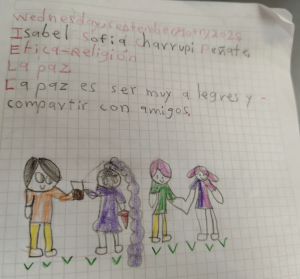 Isabel Sofia Charrupi Peñate
Etica-Religión
La paz
La paz es ser muy alegres y
compartir con amigos.